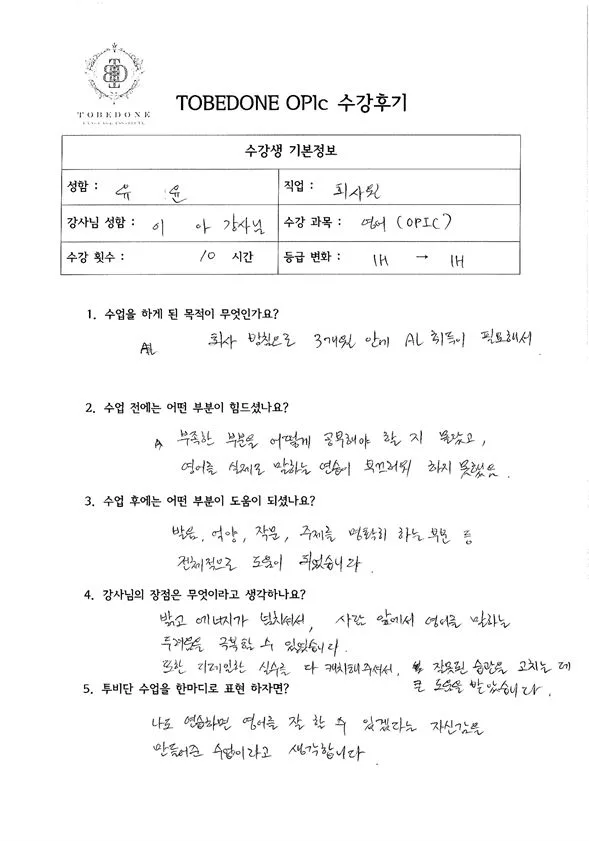 TOBEDONE
TOBEDONE OPIc 수강후기
수강생 기본정보
성함 : 유 윤 직업 : 회사원
강사님 성함 : 이 아 강사님 수강 과목 : 영어 (OPIC)
수강 횟수 : 10 시간 등급 변화 : IH → IH
1. 수업을 하게 된 목적이 무엇인가요?
회사 방침으로 3개월 안에 AL 취득이 필요해서
2. 수업 전에는 어떤 부분이 힘드셨나요?
부족한 부분을 어떻게 공부해야 할 지 몰랐고,
영어를 실제로 말하는 연습이 부끄러워 하지 못했음.
3. 수업 후에는 어떤 부분이 도움이 되셨나요?
발음, 억양, 작문, 주제를 명확히 하는 부분 등
전체적으로 도움이 되었습니다.
4. 강사님의 장점은 무엇이라고 생각하나요?
밝고 에너지가 넘치셔서, 사람 앞에서 영어를 말하는
두려움을 극복할 수 있었습니다.
또한 디테일한 실수를 다 캐치해주셔서, 잘못된 습관을 고치는 데
큰 도움을 받았습니다.
5. 투비단 수업을 한마디로 표현 하자면?
나도 연습하면 영어를 잘 할 수 있겠다는 자신감을
만들어준 수업이라고 생각합니다.